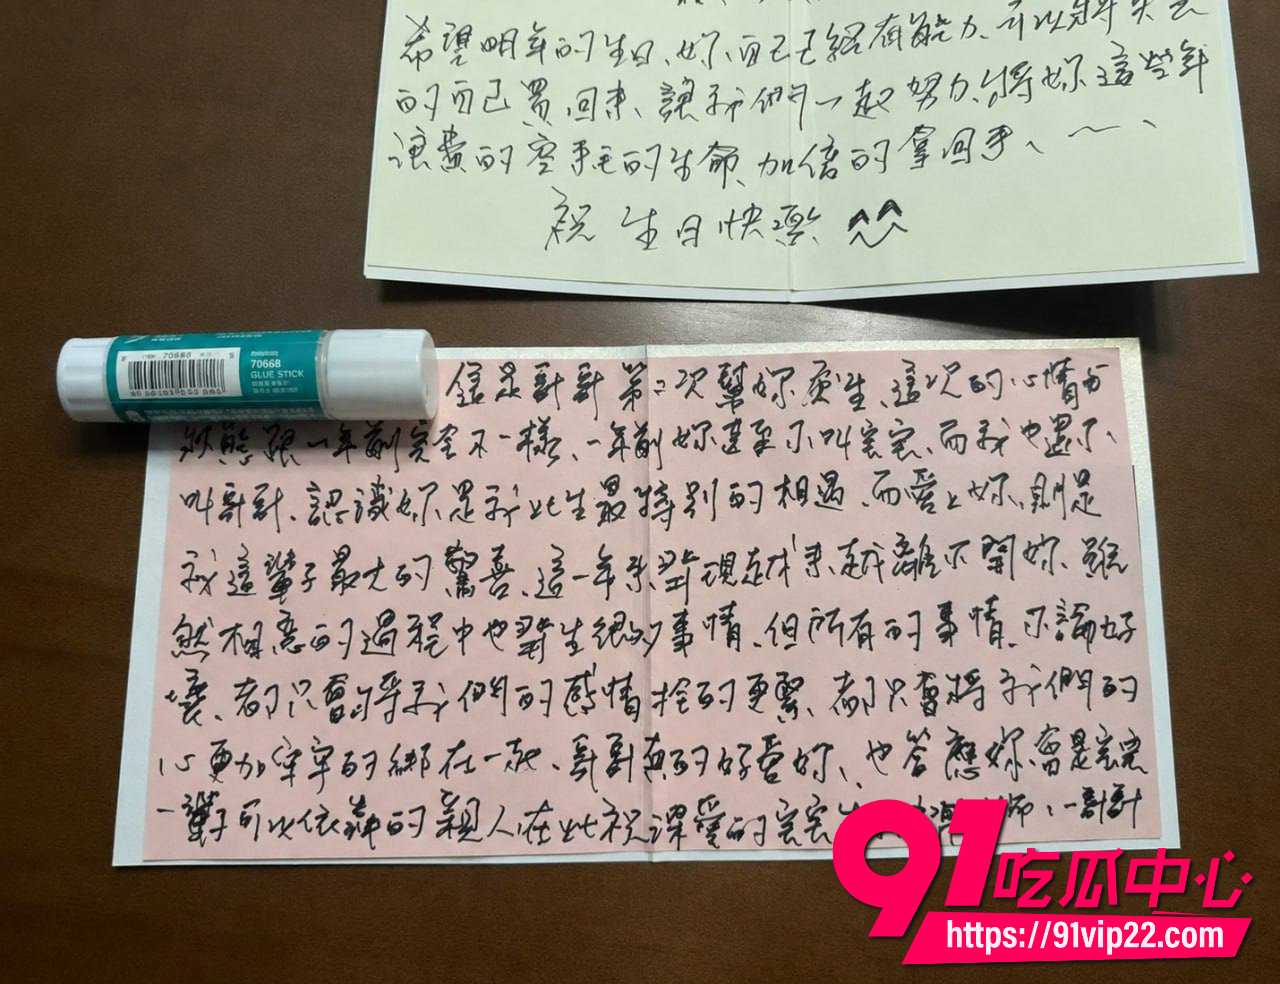 希望明年的生日、妳自己已經有能力、可以將失去
的自己買回來、讓我們一起努力、將妳這些年
浪費的空耗的生命、加倍的拿回來、~、
祝 生日快樂 ^^
70668
70668
GLUE STICK
這是哥哥第二次幫妳慶生、這次的心情与
狀態跟一年前完全不一樣、一年前妳甚至不叫宝宝、而我也還不
叫哥哥、認識妳是我此生最特別的相遇、而愛上妳、則是
我這輩子最大的驚喜、這一年来、發現越来越離不開妳、雖
然相恋的過程中也發生很多事情、但所有的事情、不論好
壞、都只會將我們的感情拴的更緊、都只會將我們的
心更加牢牢的綁在一起、哥哥真的好愛妳、也答應妳會是宝宝
一輩子可以依靠的親人在此祝深愛的宝宝生 一哥哥
91吃瓜中心
https://91vip22.com